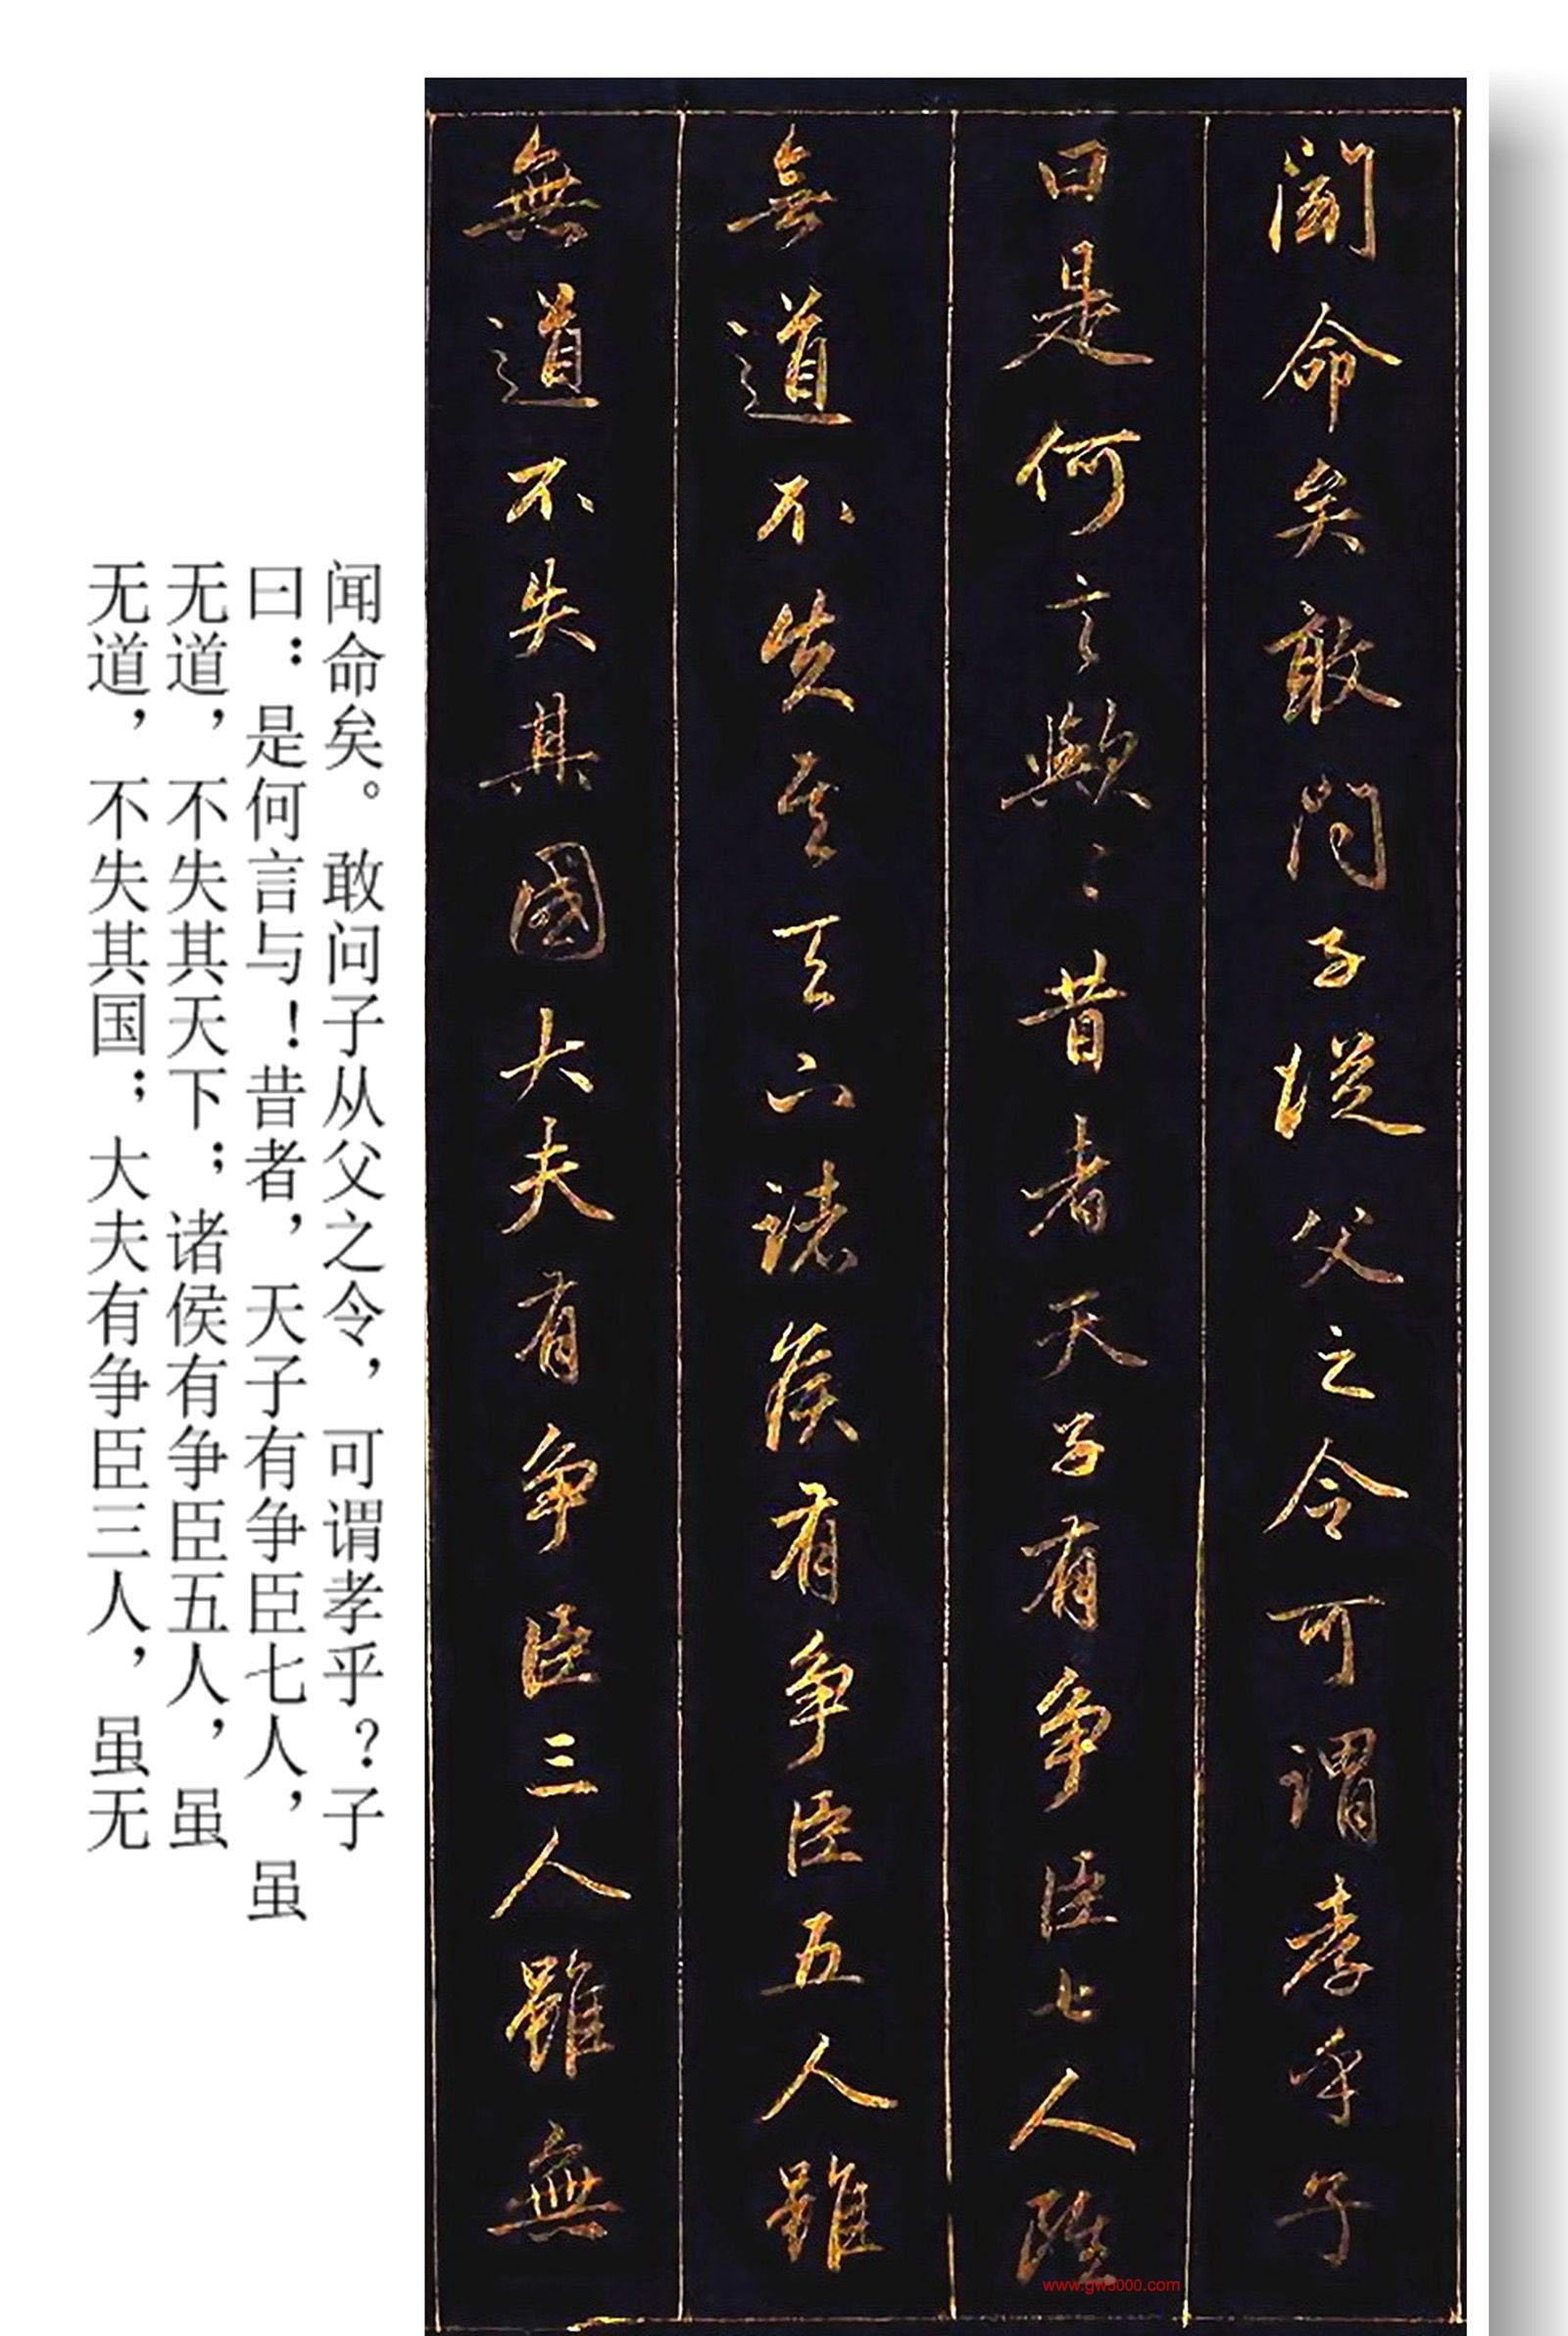 聞命矣敢问子從父之令可謂孝乎子
曰是何言歟〻昔者天子有争臣七人雖
無道不失其天下諸侯有争臣五人雖
無道不失其國大夫有争臣三人雖無
闻命矣。敢问子从父之令，可谓孝乎？子
曰：是何言与！昔者，天子有争臣七人，虽
无道，不失其天下；诸侯有争臣五人，虽
无道，不失其国；大夫有争臣三人，虽无
www.gw5000.com